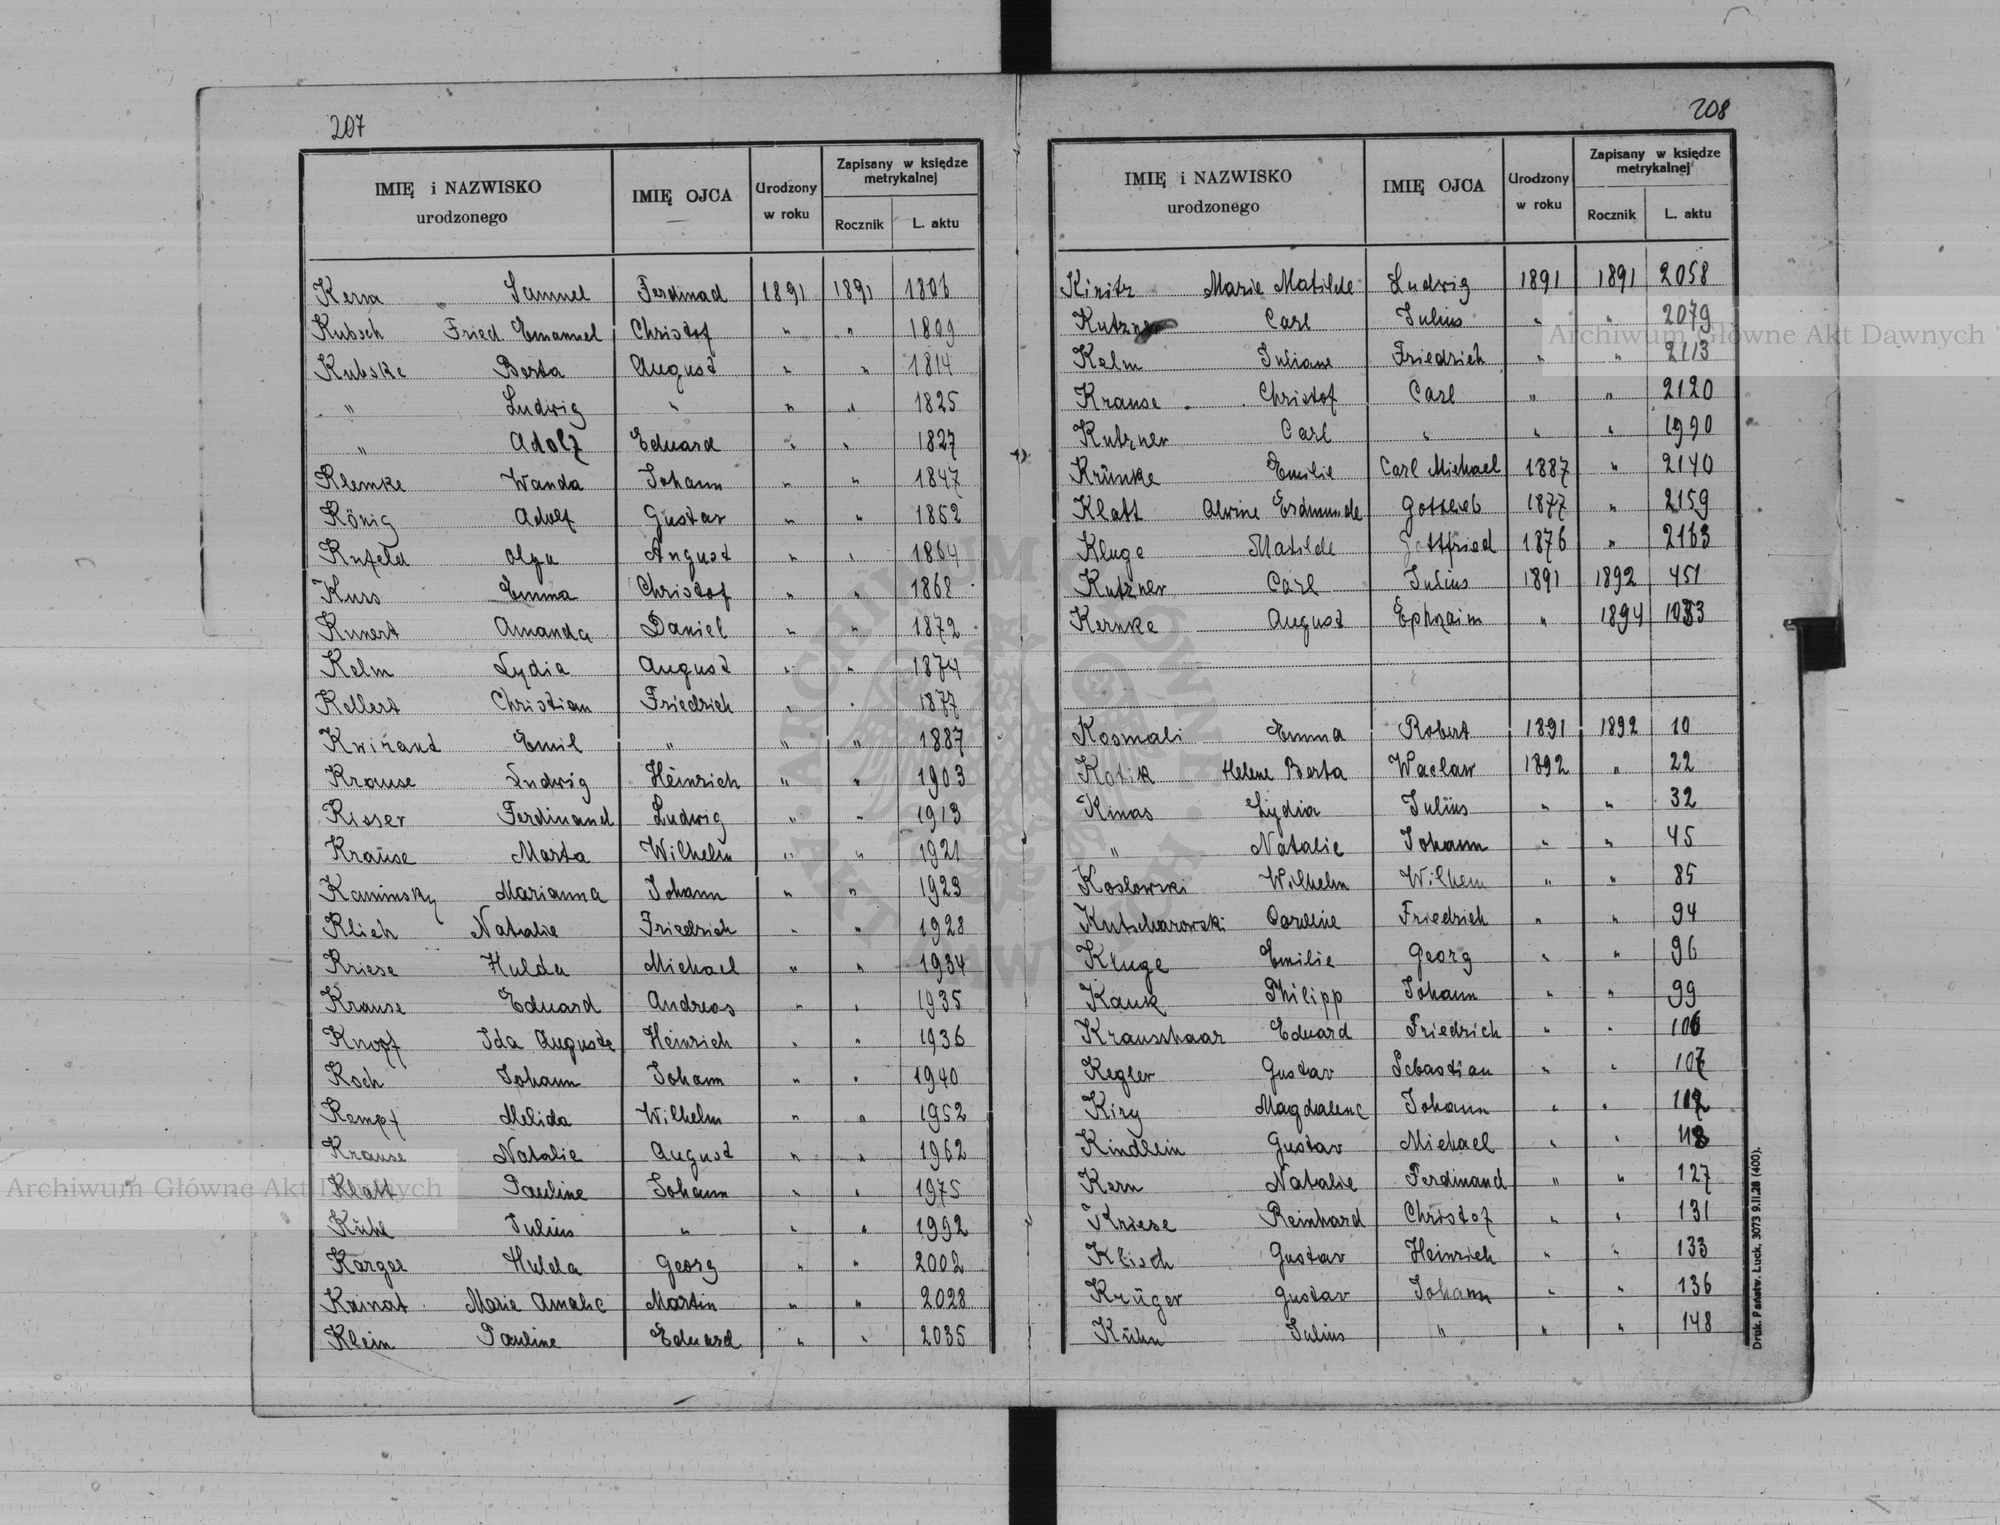 207
IMIĘ i NAZWISKO
urodzonego
IMIĘ OJCA
Urodzony
w roku
Zapisany w księdze
metrykalnej
Rocznik
L. aktu
Kerra Samuel Ferdinad 1891 1891 1806
Kubsch Fried. Emanuel Christof " " 1809
Kubske Berta August " " 1814
" Ludwig " " " 1825
" Adolf Eduard " " 1827
Klemke Wanda Johann " " 1847
König Adolf Gustav " " 1852
Knfeld Olga August " " 1864
Kuss Emma Christof " " 1868
Kunert Amanda Daniel " " 1872
Kelm Lydia August " " 1874
Kellert Christian Friedrich " " 1877
Kwirand Emil " " " 1887
Krause Ludwig Heinrich " " 1903
Risser Ferdinand Ludwig " " 1913
Krause Marta Wilhelm " " 1921
Kaminsky Marianna Johann " " 1923
Klieh Natalie Friedrich " " 1928
Kriese Hulda Michael " " 1934
Krause Eduard Andreas " " 1935
Knopf Ida Auguste Heinrich " " 1936
Koch Johann Johann " " 1940
Kempf Melida Wilhelm " " 1952
Krause Natalie August " " 1962
Klatt Pauline Johann " " 1975
Kühl Julius " " " 1992
Karger Hulda Georg " " 2002
Krinat Marie Amalie Martin " " 2028
Klein Pauline Eduard " " 2035
208
IMIĘ i NAZWISKO
urodzonego
IMIĘ OJCA
Urodzony
w roku
Zapisany w księdze
metrykalnej
Rocznik
L. aktu
Kinitz Marie Matilde Ludwig 1891 1891 2058
Kutzner Carl Julius " " 2079
Kelm Juliane Friedrich " " 2113
Krause Christof Carl " " 2120
Kutzner Carl " " " 1990
Krünke Emilie Carl Michael 1887 " 2140
Klatt Alwine Erdmunde Gottlieb 1877 " 2159
Kluge Matilde Gottfried 1876 " 2163
Kutzner Carl Julius 1891 1892 451
Kernke August Ephraim " 1894 1033
Kosmali Emma Robert 1891 1892 10
Kotik Helene Berta Waclaw 1892 " 22
Kinas Lydia Julius " " 32
" Natalie Johann " " 45
Koslowski Wilhelm Wilhem " " 85
Kutscharowski Caroline Friedrich " " 94
Kluge Emilie Georg " " 96
Kauk Philipp Johann " " 99
Kraushaar Eduard Friedrich " " 106
Kegler Gustav Sebastian " " 107
Kiry Magdalene Johann " " 112
Kindlein Gustav Michael " " 118
Kern Natalie Ferdinand " " 127
Kriese Reinhard Christof " " 131
Klisch Gustav Heinrich " " 133
Krüger Gustav Johann " " 136
Kühn Julius " " " 148
Druk. Państw. Łuck. 3073 9.II.28 (400).
Archiwum Główne Akt Dawnych
Archiwum Główne Akt Dawnych
ARCHIWUM GŁÓWNE AKT DAWNYCH